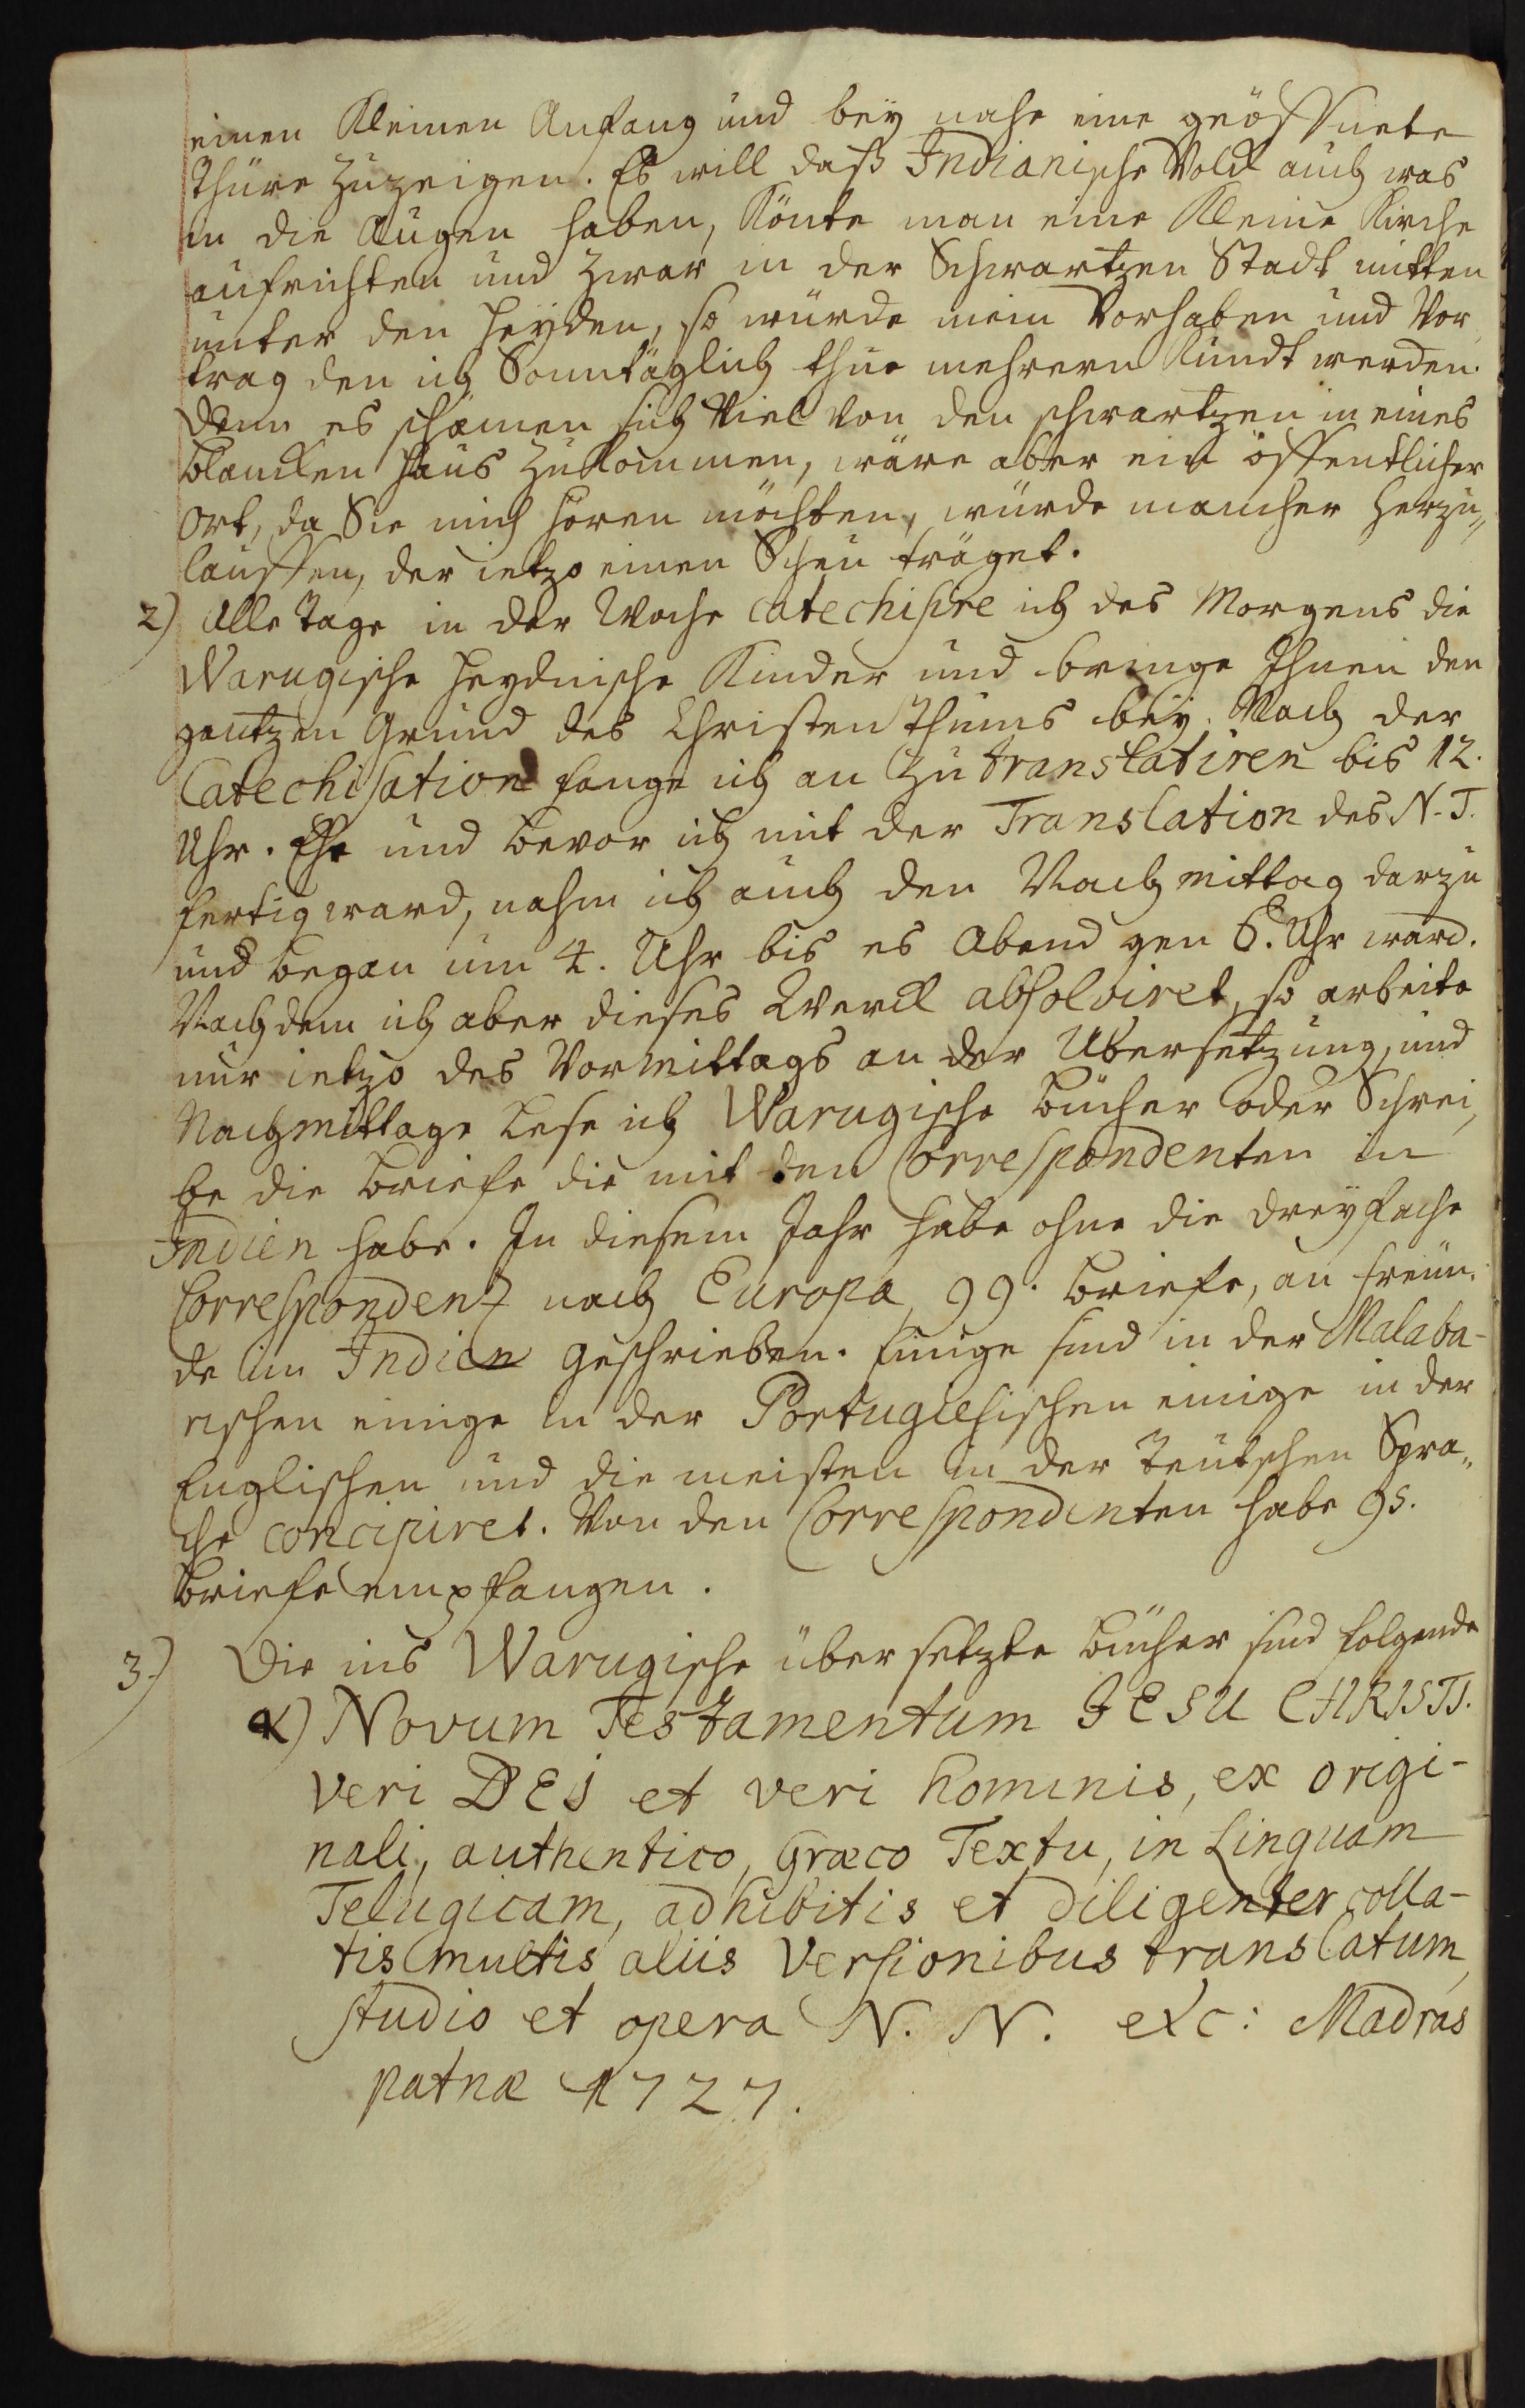 einen Kleinen Anfang und bey nahe eine geöffnete
Thüre zuzeigen. Es will daß Indianische Volck auch was
in die Augen haben, könte man eine kleine Kirche
aufrichten und zwar in der Schwartzen Stadt mitten
unter den Heyden, so würde mein Vorhaben und Vor
trag den ich Sonntäglich thue mehrern kundt werden.
Denn es schämen sich viel von den schwartzen in eines
blancken Haus zukommen, wäre aber ein öffentlicher
Ort, da Sie mich hören möchten, würde mancher herzu„
lauffen, der ietzo einen Scheu träget.
2) Alle Tage in der Woche catechisire ich des Morgens die
Warugische Heydnische Kinder und bringe Ihnen den
gantzen Grund des Christenthums bey. Nach der
Catechisation fange ich an zu translatiren bis 12.
Uhr. Ehe und bevor ich mit der Translation des N. T.
fertig ward, nahm ich auch den Nachmittag darzu
und began um 4. Uhr bis es Abend gen 6. Uhr ward.
Nachdem ich aber dieses Werck absolviret, so arbeite
nur ietzo des Vormittags an der Ubersetzung, und
Nachmittage lese ich Warugische Bücher oder Schrei,
be die Briefe die mit den Correspondenten in
Indien habe. In diesem Jahr habe ohne die dreyfache
Correspondenz nach Europa, 99. Briefe, an freün,
de im Indien geschrieben. Einige sind in der Malaba-
rischen einige in der Portugiesischen einige in der
Englischen und die meisten in der Teutschen Spra„
che concipiret. Von den Correspondenten habe 95.
Briefe empfangen.
3.) Die ins Warugische übersetzte Bücher sind folgende
α) Novum Testamentum JESU CHRISTI.
veri DEI et veri hominis, ex origi-
nali, authentico, Græco Textu, in Linguam
Telugicam, adhibitis et diligenter colla-
tis multis aliis Versionibus translatum,
studio et opera N. N. exc: Madras
patnæ 1727.